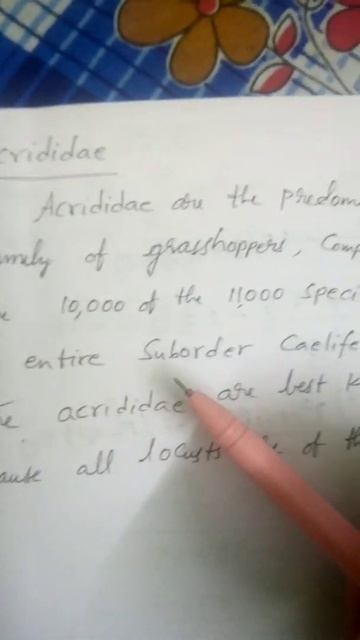 crididae
Acrididae are the predom
of grasshoppers, Comp
10,000 of the 11,000 speci
entire Suborder Caelife
acrididae are best k
ause all locusts of th